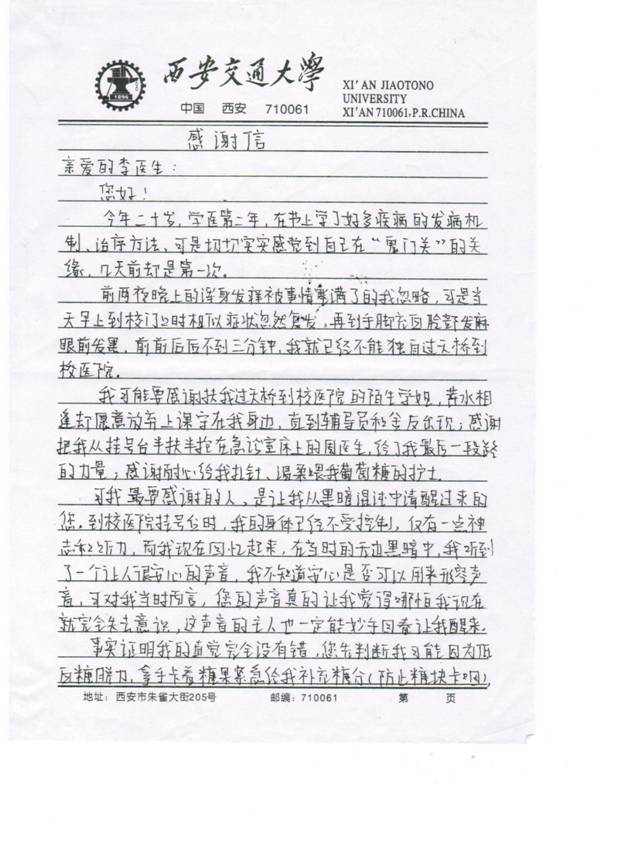 西安交通大学
中国 西安 710061
XI'AN JIAOTONO
UNIVERSITY
XI'AN 710061,P.R.CHINA
1896
感谢信
亲爱的李医生:
您好!
今年二十岁,学医第二年,在书上学了好多疾病的发病机
制、治疗方法,可是切切实实感觉到自己在“鬼门关”的关
缘,几天前却是第一次。
前两夜晚上的浑身发痒被事情塞满了的我忽略,可是当
天早上到校门口时相似症状忽然复发,再到手脚充血脸部发麻
眼前发黑,前前后后不到三分钟,我就已经不能独自过天桥到
校医院。
我可能要感谢扶我过天桥到校医院的陌生学姐,萍水相
逢却愿意放弃上课守在我身边,直到辅导员和舍友出现;感谢
把我从挂号台半扶半抢在急诊室床上的周医生,给了我最后一段路
的力量;感谢耐心给我扎针、温柔喂我葡萄糖的护士。
可我最要感谢的人,是让我从黑暗混沌中清醒过来的
您。到校医院挂号台时,我的身体已经不受控制,仅有一点神
志和听力,而我现在回忆起来,在当时的无边黑暗中,我听到
了一个让人很安心的声音,我不知道安心是否可以用来形容声
音,可对我当时而言,您的声音真的让我觉得哪怕我现在
就完全失去意识,这声音的主人也一定能妙手回春让我醒来。
事实证明我的直觉完全没有错,您先判断我可能因为低
血糖脱力,拿手卡着糖果紧急给我补充糖分(防止糖块卡咽),
地址:西安市朱雀大街205号 邮编:710061 第 页